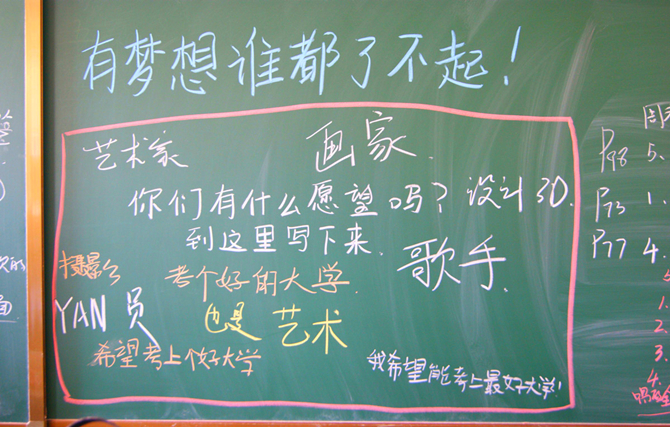 有梦想谁都了不起！
艺术家
画家
你们有什么愿望吗？
设计3D
到这里写下来
歌手
摄影
考个好的大学
YAN 员
也是 艺术
希望考上个好大学
我希望能考上最好大学！
周
P98 5.
P73 1.
P77 4.
1.
2.
3.
4.